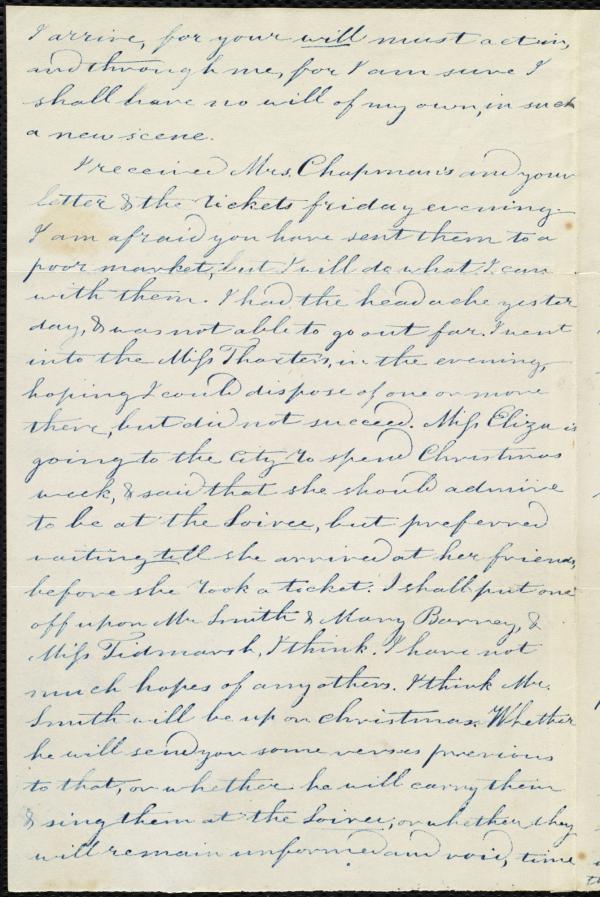 I arrive, for your will must act in,
and through me, for I am sure I
shall have no will of my own, in such
a new scene.
I received Mrs. Chapman's and your
letter & the tickets friday evening.
I am afraid you have sent them to a
poor market, but I will do what I can
with them. I had the headache yester
day, & was not able to go out far. I went
into the Miss Thaxters, in the evening,
hoping I could dispose of one or more
there, but did not succeed. Miss Eliza is
going to the city to spend Christmas
week, & said that she should admire
to be at the Soiree, but preferred
waiting till she arrived at her friends,
before she took a ticket. I shall put one
off upon Mr Smith & Mary Barney, &
Miss Tidmarsh, I think. I have not
much hopes of any others. I think Mr.
Smith will be up on christmas. Whether
he will send you some verses previous
to that, or whether he will carry them
& sing them at the Soiree, or whether they
will remain unformed and void, time